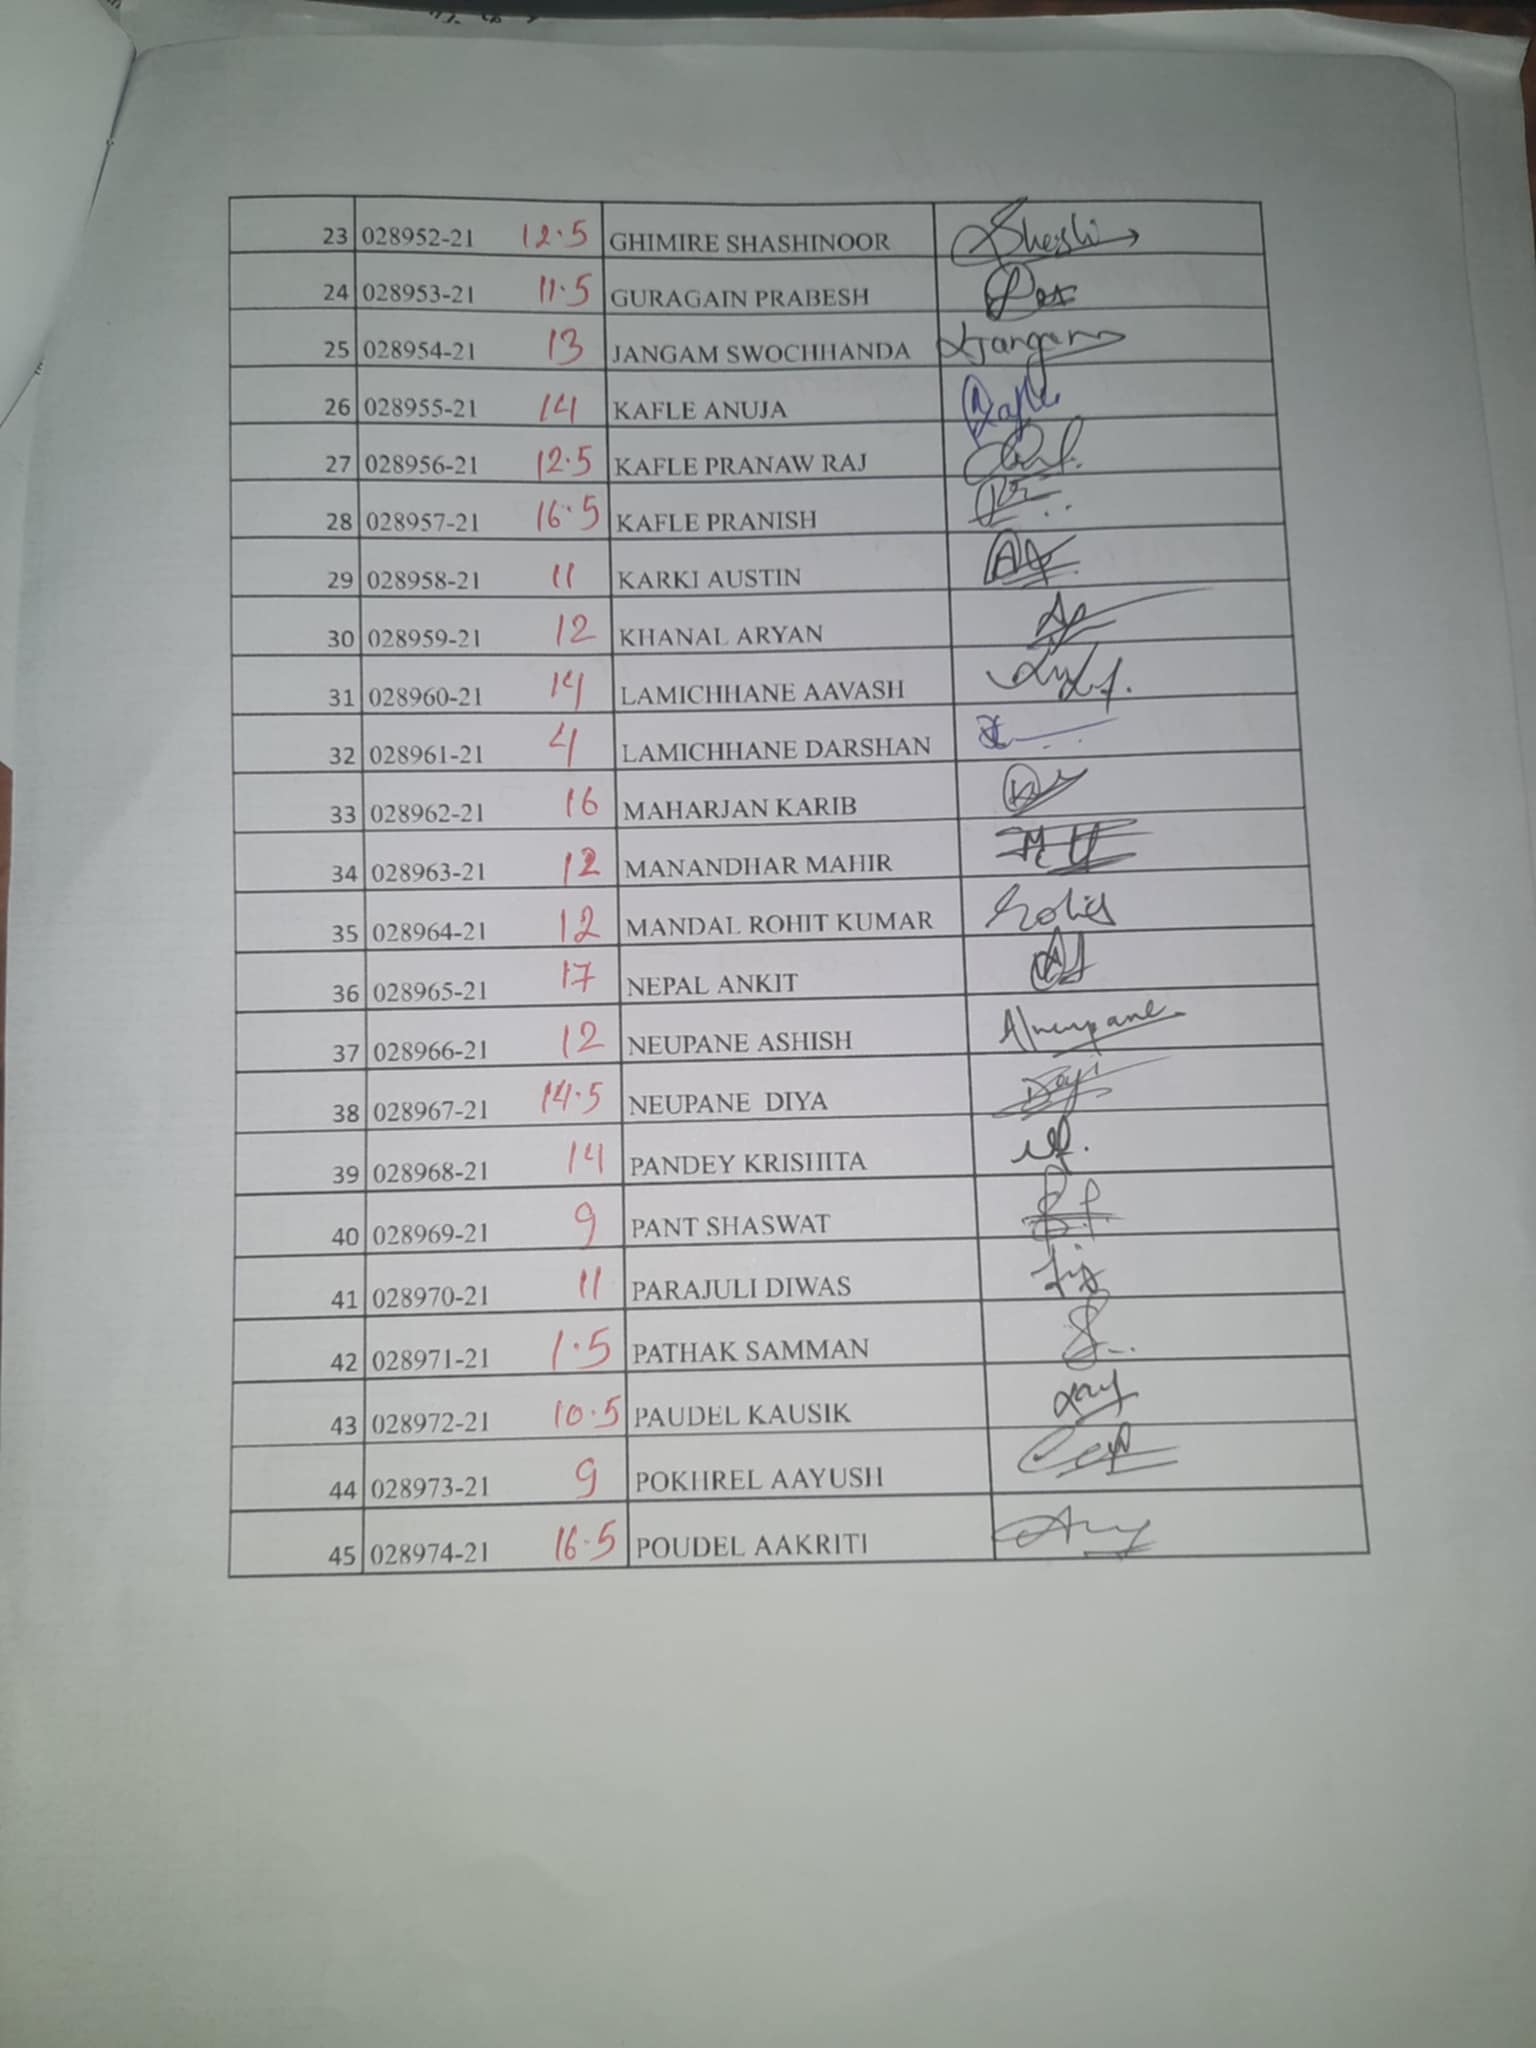 23 028952-21 12.5 GHIMIRE SHASHINOOR Shashi
24 028953-21 11.5 GURAGAIN PRABESH
25 028954-21 13 JANGAM SWOCHHANDA Jangam
26 028955-21 14 KAFLE ANUJA Kafle
27 028956-21 12.5 KAFLE PRANAW RAJ
28 028957-21 16.5 KAFLE PRANISH
29 028958-21 11 KARKI AUSTIN
30 028959-21 12 KHANAL ARYAN
31 028960-21 14 LAMICHHANE AAVASH
32 028961-21 4 LAMICHHANE DARSHAN
33 028962-21 16 MAHARJAN KARIB
34 028963-21 12 MANANDHAR MAHIR
35 028964-21 12 MANDAL ROHIT KUMAR
36 028965-21 17 NEPAL ANKIT
37 028966-21 12 NEUPANE ASHISH Aneupane
38 028967-21 14.5 NEUPANE DIYA
39 028968-21 14 PANDEY KRISHITA
40 028969-21 9 PANT SHASWAT
41 028970-21 11 PARAJULI DIWAS
42 028971-21 1.5 PATHAK SAMMAN
43 028972-21 10.5 PAUDEL KAUSIK
44 028973-21 9 POKHREL AAYUSH
45 028974-21 16.5 POUDEL AAKRITI